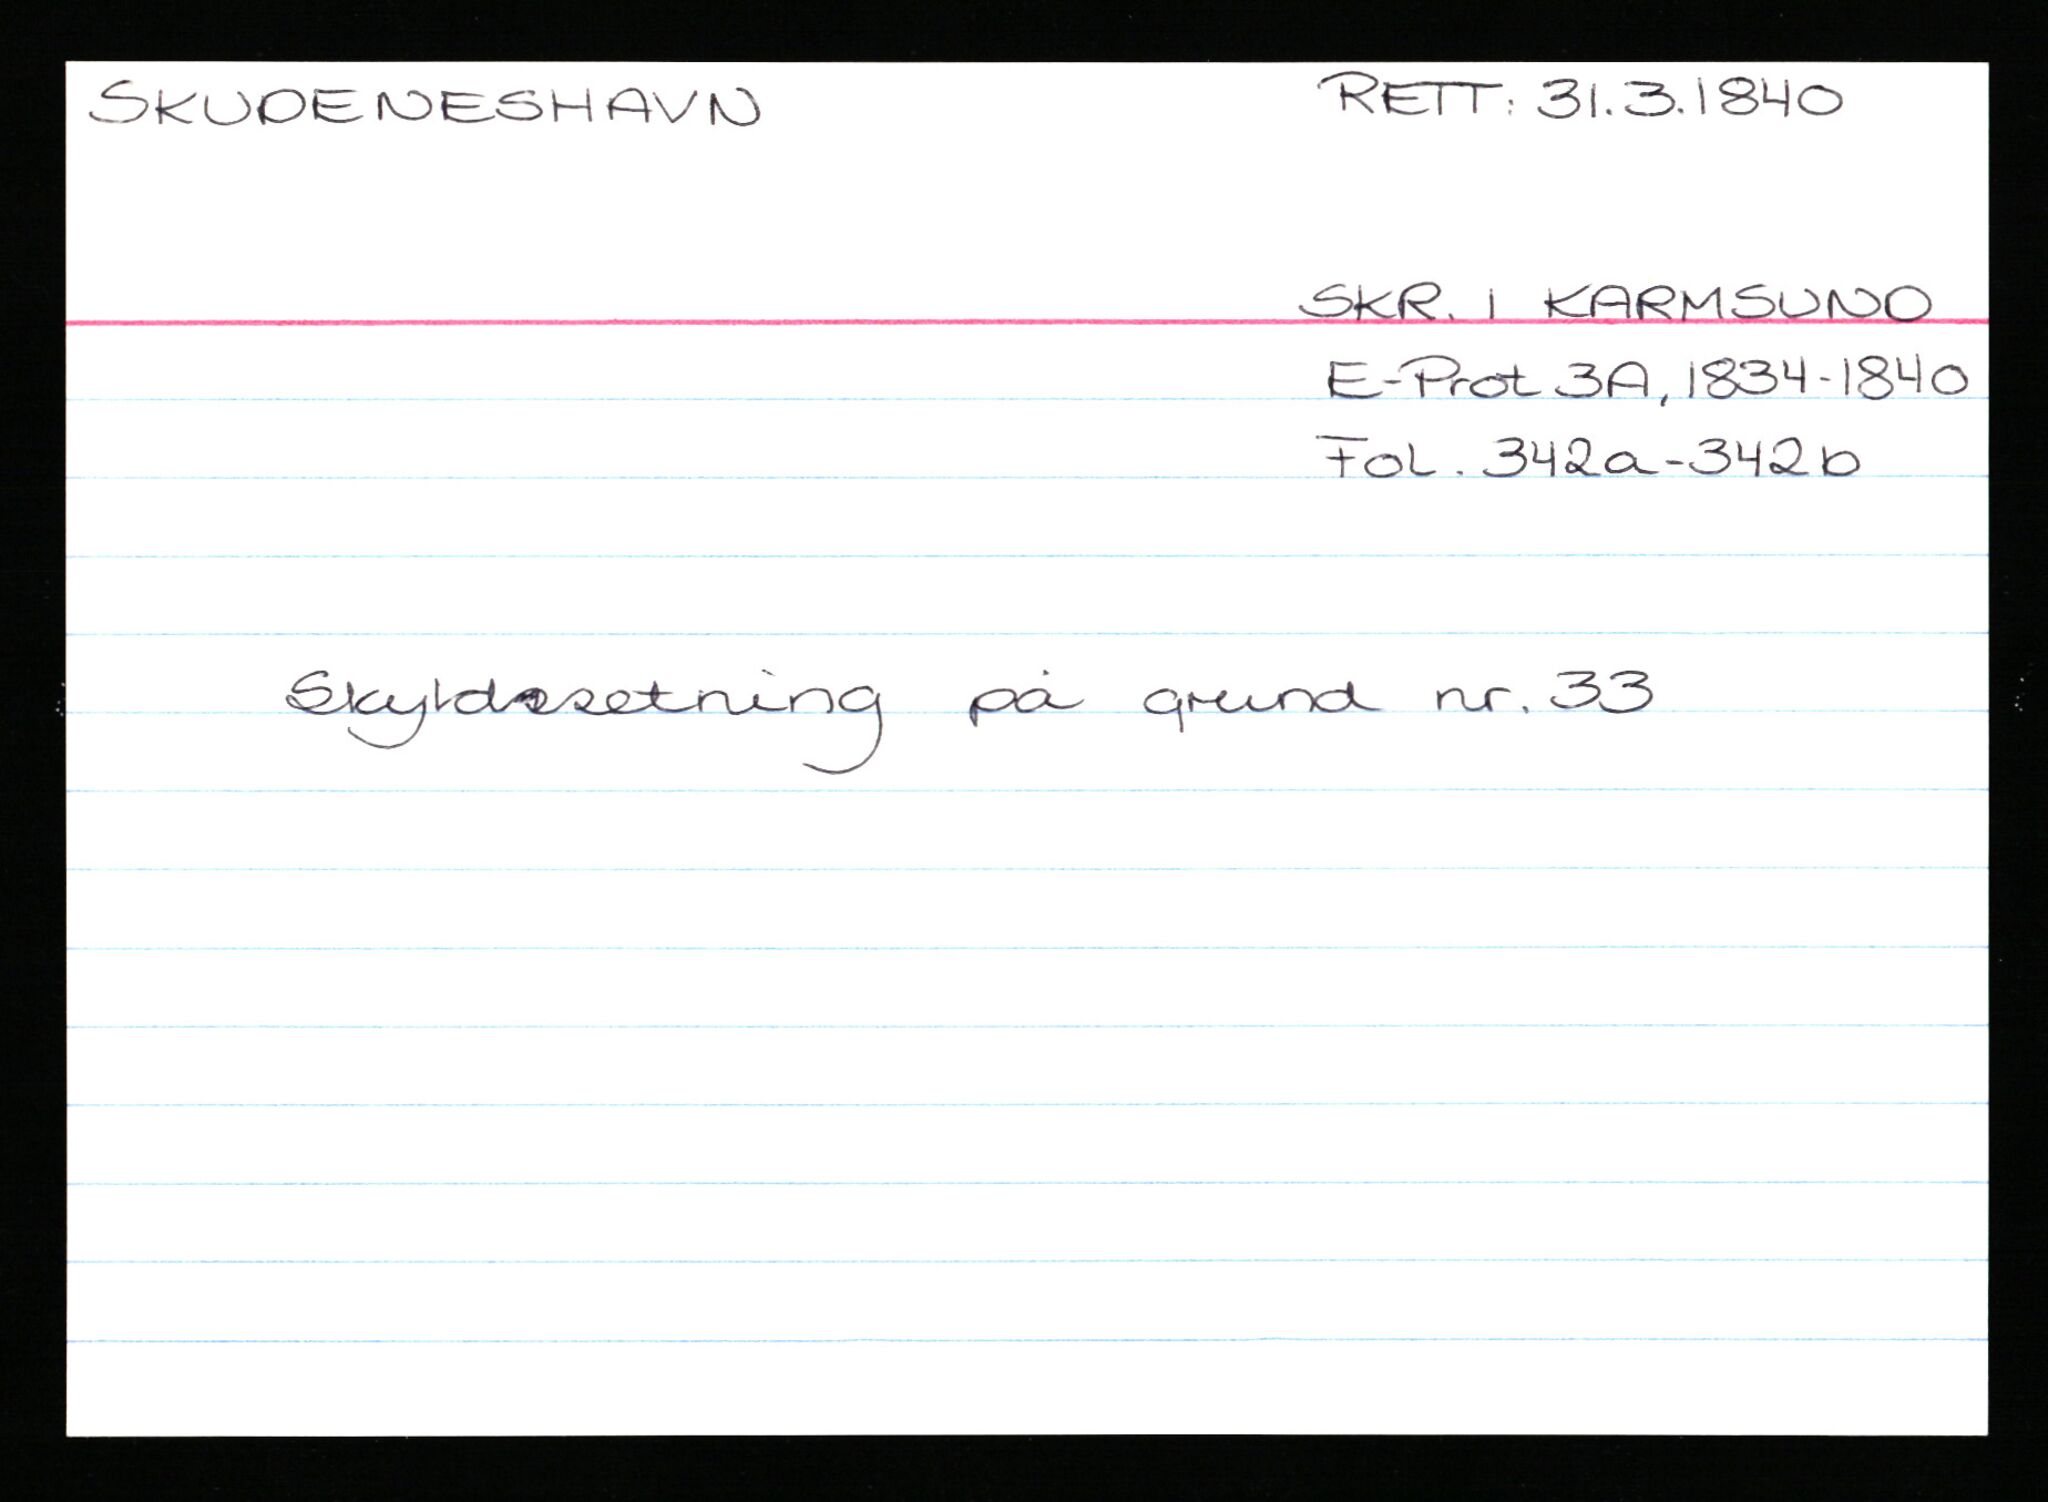 SKUDENESHAVN
RETT: 31.3.1840
SKR. I KARMSUND
E-Prot 3A, 1834-1840
FOL. 342a-342b
Skyldsetning på grund nr. 33